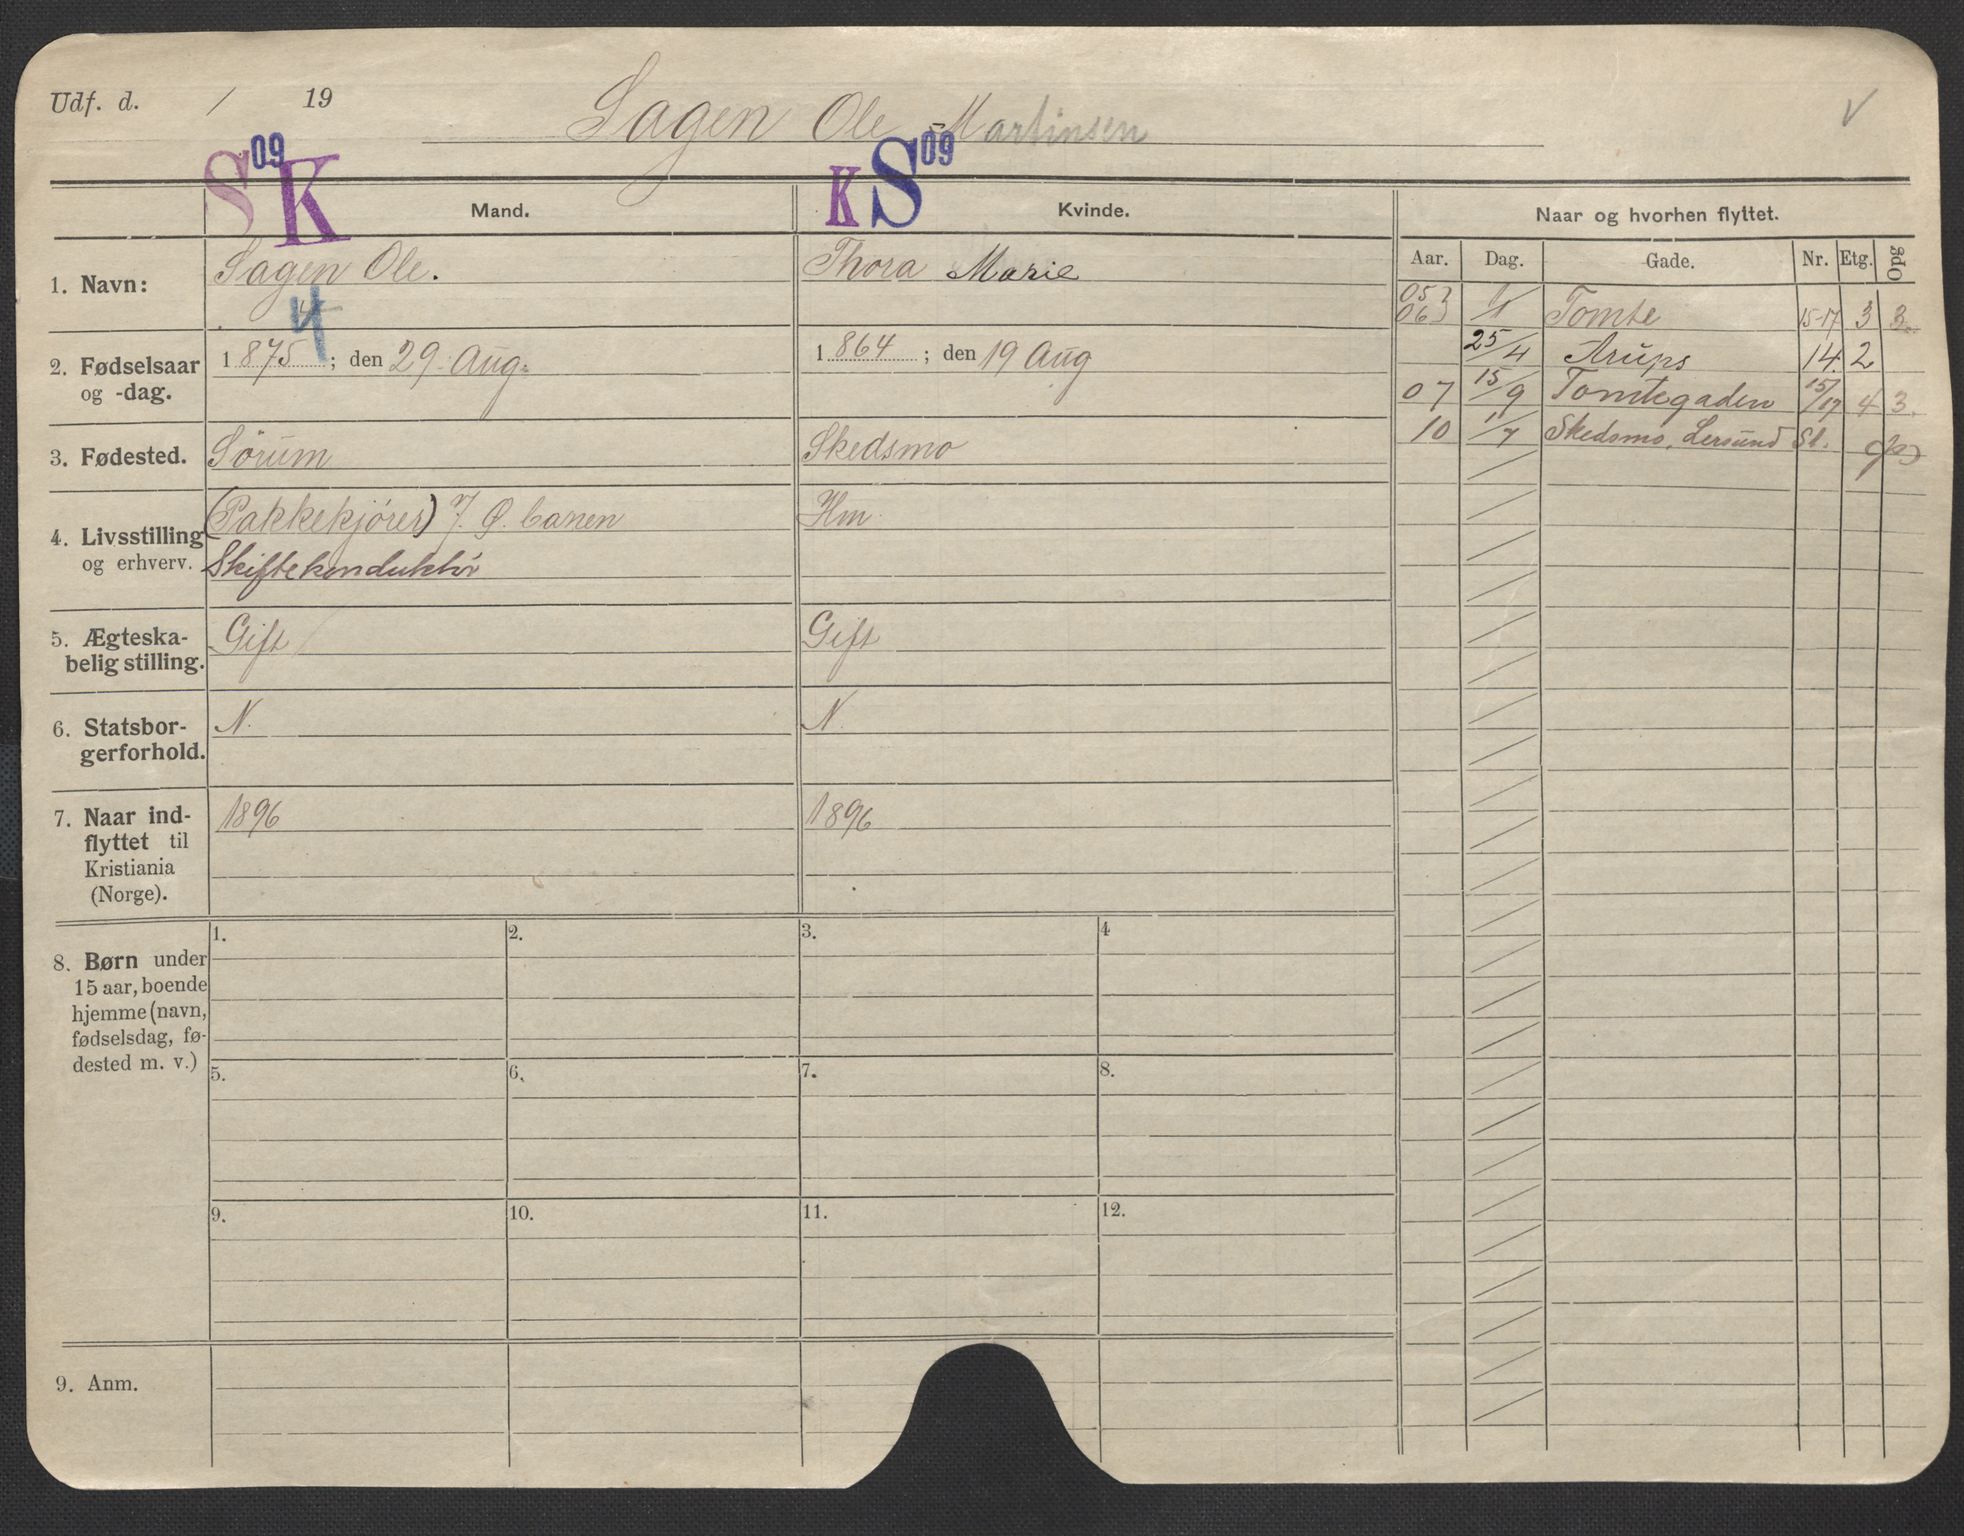 Udf. d. / 19
Sagen Ole Martinsen
S 09 K
K S 09
Mand.
Kvinde.
Naar og hvorhen flyttet.
Aar. Dag. Gade. Nr. Etg. Opg
1. Navn:
Sagen Ole.
Thora Marie
4
05 } 06 } Tomte 15-17 3 3
25/4 Arups 14. 2
07 15/9 Tomtegaden 15/17 4 3.
10 11/7 Skedsmo, St.
2. Fødselsaar
og -dag.
1875; den 29. Aug.
1864; den 19 Aug
3. Fødested.
Sørum
Skedsmo
4. Livsstilling
og erhverv.
(Pakkekjører) banen
Skiftekonduktør
Hm
5. Ægteska-
belig stilling.
Gift
Gift
6. Statsbor-
gerforhold.
N.
N.
7. Naar ind-
flyttet til
Kristiania
(Norge).
1896
1896
8. Børn under
15 aar, boende
hjemme (navn,
fødselsdag, fø-
dested m. v.)
1. 2. 3. 4
5. 6. 7. 8.
9. 10. 11. 12.
9. Anm.